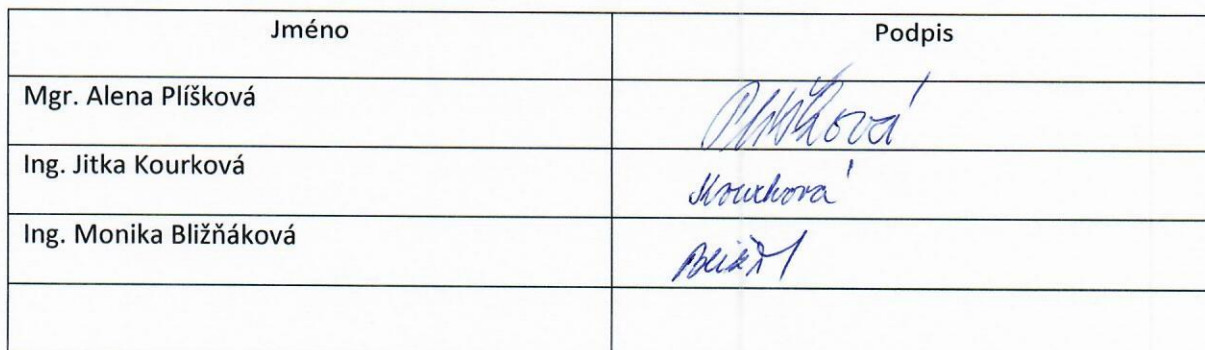 Jméno Podpis
Mgr. Alena Plíšková Plíšková
Ing. Jitka Kourková Kourková
Ing. Monika Bližňáková